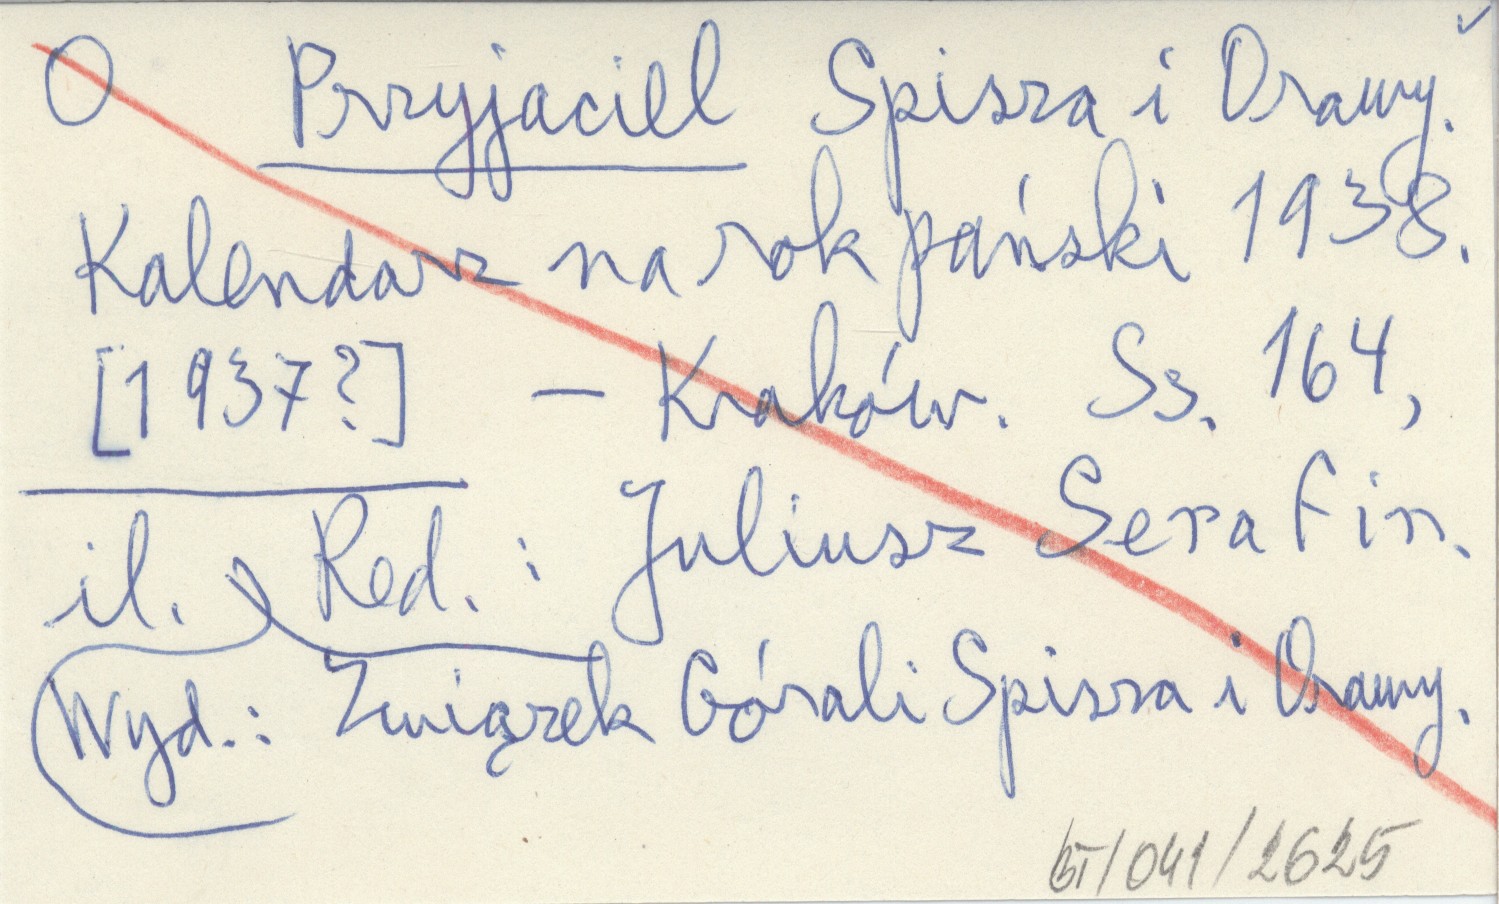 O Przyjaciel Spisza i Orawy.
Kalendarz na rok pański 1938.
[1937?] — Kraków. Ss. 164,
il. Red.: Juliusz Serafin.
Wyd.: Związek Górali Spisza i Orawy.
BT/041/2625